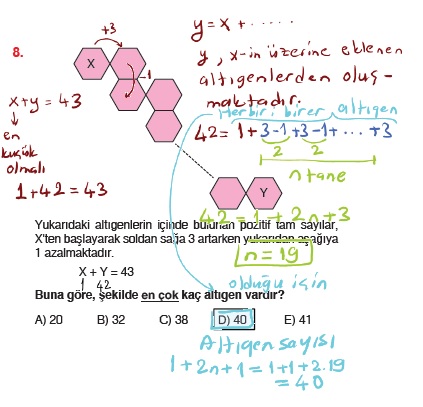 8.
+3
X
-1
y = x + ......
y, x-in üzerine eklenen
altıgenlerden oluş-
maktadır.
Herbiri birer altıgen
x+y = 43
en
küçük
olmalı
1+42 = 43
42 = 1 + 3 - 1 + 3 - 1 + ... + 3
2 2
n tane
Y
42 = 1 + 2n + 3
n = 19
Yukarıdaki altıgenlerin içinde bulunan pozitif tam sayılar,
X'ten başlayarak soldan sağa 3 artarken yukarıdan aşağıya
1 azalmaktadır.
X + Y = 43
1 42
olduğu için
Buna göre, şekilde en çok kaç altıgen vardır?
A) 20 B) 32 C) 38 D) 40 E) 41
Altıgen sayısı
1 + 2n + 1 = 1 + 1 + 2.19
= 40